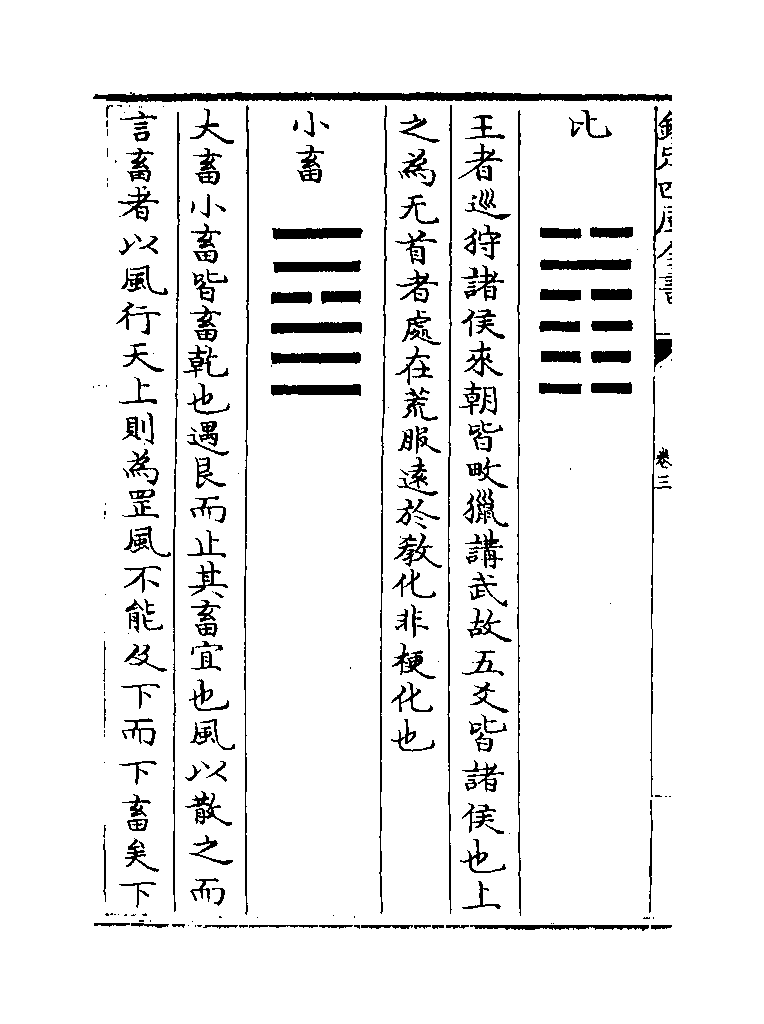 欽定四庫全書
卷三
比
王者巡狩諸侯來朝皆畋獵講武故五爻皆諸侯也上
之為无首者處在荒服遠於教化非梗化也
小畜
大畜小畜皆畜乾也遇艮而止其畜宜也風以散之而
言畜者以風行天上則為罡風不能及下而下畜矣下